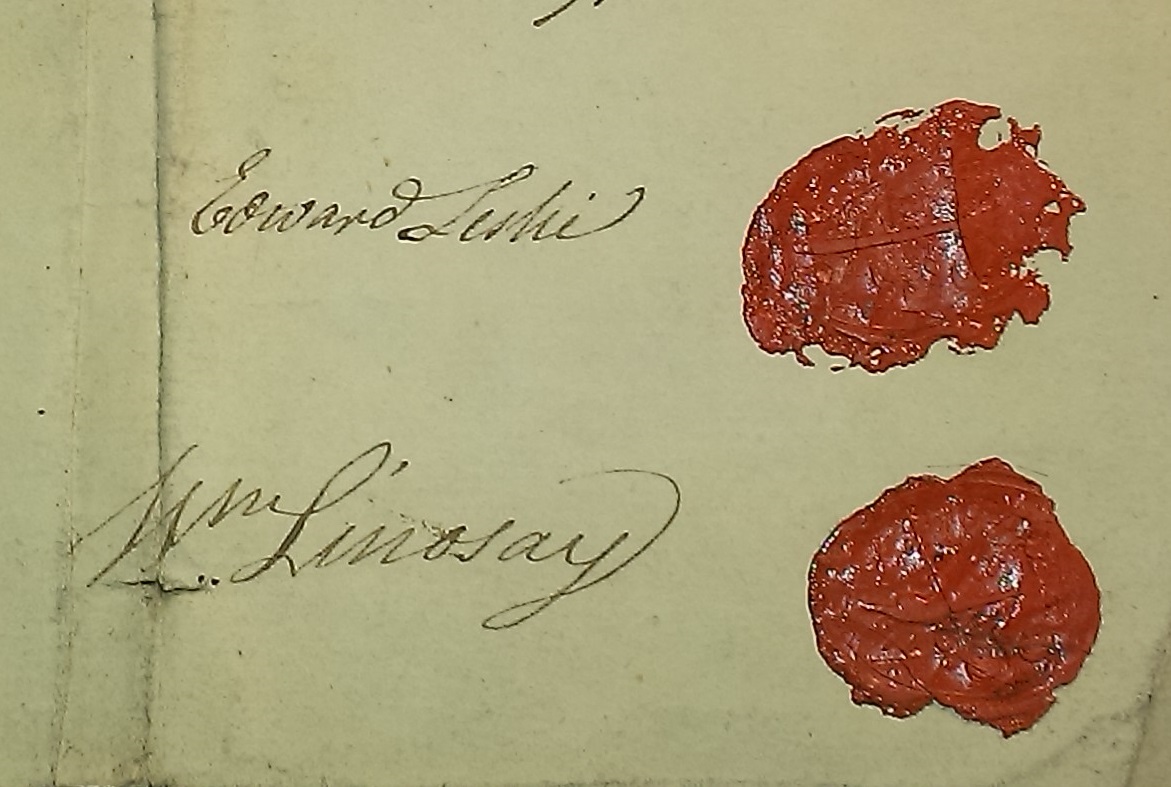 Edward Leslie
Wm Lindsay